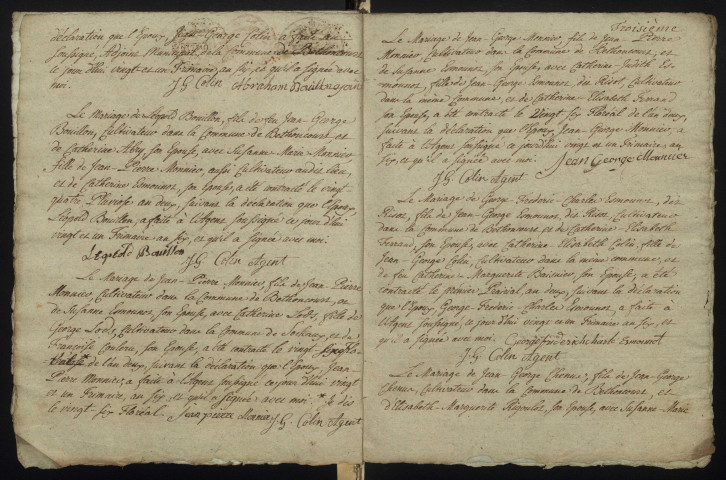 déclaration que l'Epoux, Jean-George Colin, a faite au
soussigné, Adjoint Municipal de la Commune de Bethoncourt
ce jourd'hui vingt et un Frimaire, an six, et qu'il a signée avec
moi. J. G. Colin Abraham
Le Mariage de Léopold Bouillon, fils de feu Jean-George
Bouillon, Cultivateur dans la Commune de Bethoncourt et
de Catherine Abry, son Epouse, avec Susanne-Marie Monnier,
fille de Jean-Pierre Monnier, aussi Cultivateur audit lieu,
et de Catherine Emounot, son Epouse, a été contracté le vingt
quatre Pluviose an deux, suivant la déclaration que l'Epoux,
Léopold Bouillon, a faite à l'Agent soussigné ce jourd'hui
vingt et un Frimaire an six et qu'il a signée avec moi.
Léopold Bouillon
J. G. Colin Agent
Le Mariage de Jean-Pierre Monnier, fils de Jean-Pierre
Monnier, Cultivateur dans la Commune de Bethoncourt, et
de Susanne Emounot, son Epouse, avec Catherine Lods, fille de
George Lods, Cultivateur dans la Commune de Sochaux, et de
Françoise Couleru, son Epouse, a été contracté le vingt
de l'an deux, suivant la déclaration que l'Epoux, Jean-
Pierre Monnier, a faite à l'Agent soussigné ce jourd'hui vingt
et un Frimaire, an six et qu'il a signée avec moi. * je dis
le vingt six Floréal. Jean pierre Monier J. G. Colin Agent
Troisième
Le Mariage de Jean-George Monnier, fils de Jean-Pierre
Monnier, Cultivateur dans la Commune de Bethoncourt, et
de Susanne Emounot, son Epouse, avec Catherine-Judith E-
mounot, fille de Jean-George Emounot, dit Risot, Cultivateur
dans la même Commune, et de Catherine-Elisabeth Ferrand
son Epouse, a été contracté le Vingt six Floréal de l'an deux,
suivant la déclaration que l'Epoux, Jean-George Monnier, a
faite à l'Agent soussigné ce jourd'hui vingt et un Frimaire, an
six, et qu'il a signée avec moi. Jean George Monnier
J. G. Colin Agent
Le Mariage de George-Frederic-Charles Emounot, dit
Risot, fils de Jean-George Emounot, dit Risot, Cultivateur
dans la Commune de Bethoncourt, et de Catherine-Elisabeth
Ferrand, son Epouse, avec Catherine-Elisabeth Colin, fille de
Jean-George Colin, Cultivateur dans la même commune, et
de feu Catherine-Marguerite Baisnier, son Epouse, a été
contracté le premier Prairial, an deux, suivant la déclaration
que l'Epoux George-Frederic-Charles Emounot, a faite à
l'Agent soussigné, ce jourd'hui vingt et un Frimaire an six, et
qu'il a signée avec moi. George friderich charle Emounot
J. G. Colin Agent
Le Mariage de Jean-George Chenus, fils de Jean-George
Chenus, Cultivateur dans la Commune de Bethoncourt, et
d'Elisabeth-Marguerite Rigoulot, son Epouse, avec Susanne-Marie